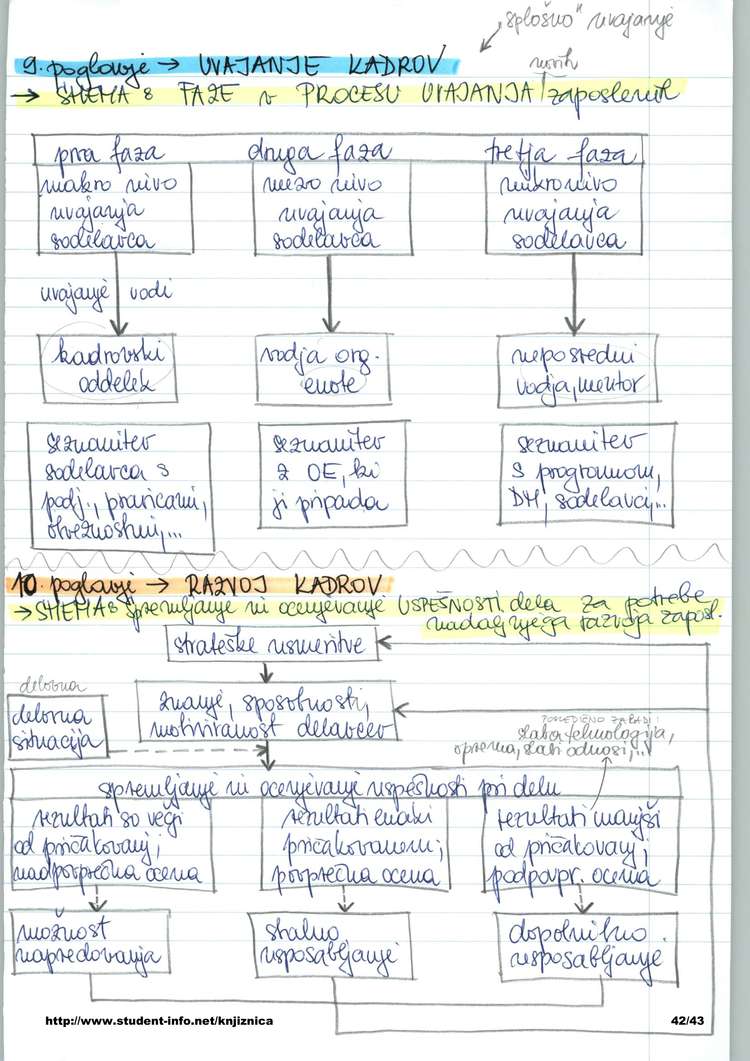 "splošno" uvajanje
9. poglavje → UVAJANJE KADROV
novih
→ SHEMA: FAZE v PROCESU UVAJANJA zaposlenih
prva faza
makro nivo
uvajanja
sodelavca
druga faza
mezo nivo
uvajanja
sodelavca
tretja faza
mikro nivo
uvajanja
sodelavca
uvajanje vodi
kadrovski
oddelek
vodja org.
enote
neposredni
vodja, mentor
seznanitev
sodelavca s
podj., pravicami,
obveznostmi,...
seznanitev
z OE, ki
ji pripada
seznanitev
s programom,
DM, sodelavci,...
10. poglavje → RAZVOJ KADROV
→ SHEMA: spremljanje in ocenjevanje USPEŠNOSTI dela za potrebe
nadaljnjega razvoja zaposl.
strateške usmeritve
znanje, sposobnosti,
motiviranost delavcev
delovna
delovna
situacija
slaba tehnologija,
oprema, slabi odnosi,...
spremljanje in ocenjevanje uspešnosti pri delu
rezultati so večji
od pričakovanj;
nadpovprečna ocena
rezultati enaki
pričakovanim;
povprečna ocena
rezultati manjši
od pričakovanj;
podpovpr. ocena
možnost
napredovanja
stalno
usposabljanje
dopolnilno
usposabljanje
http://www.student-info.net/knjiznica
42/43